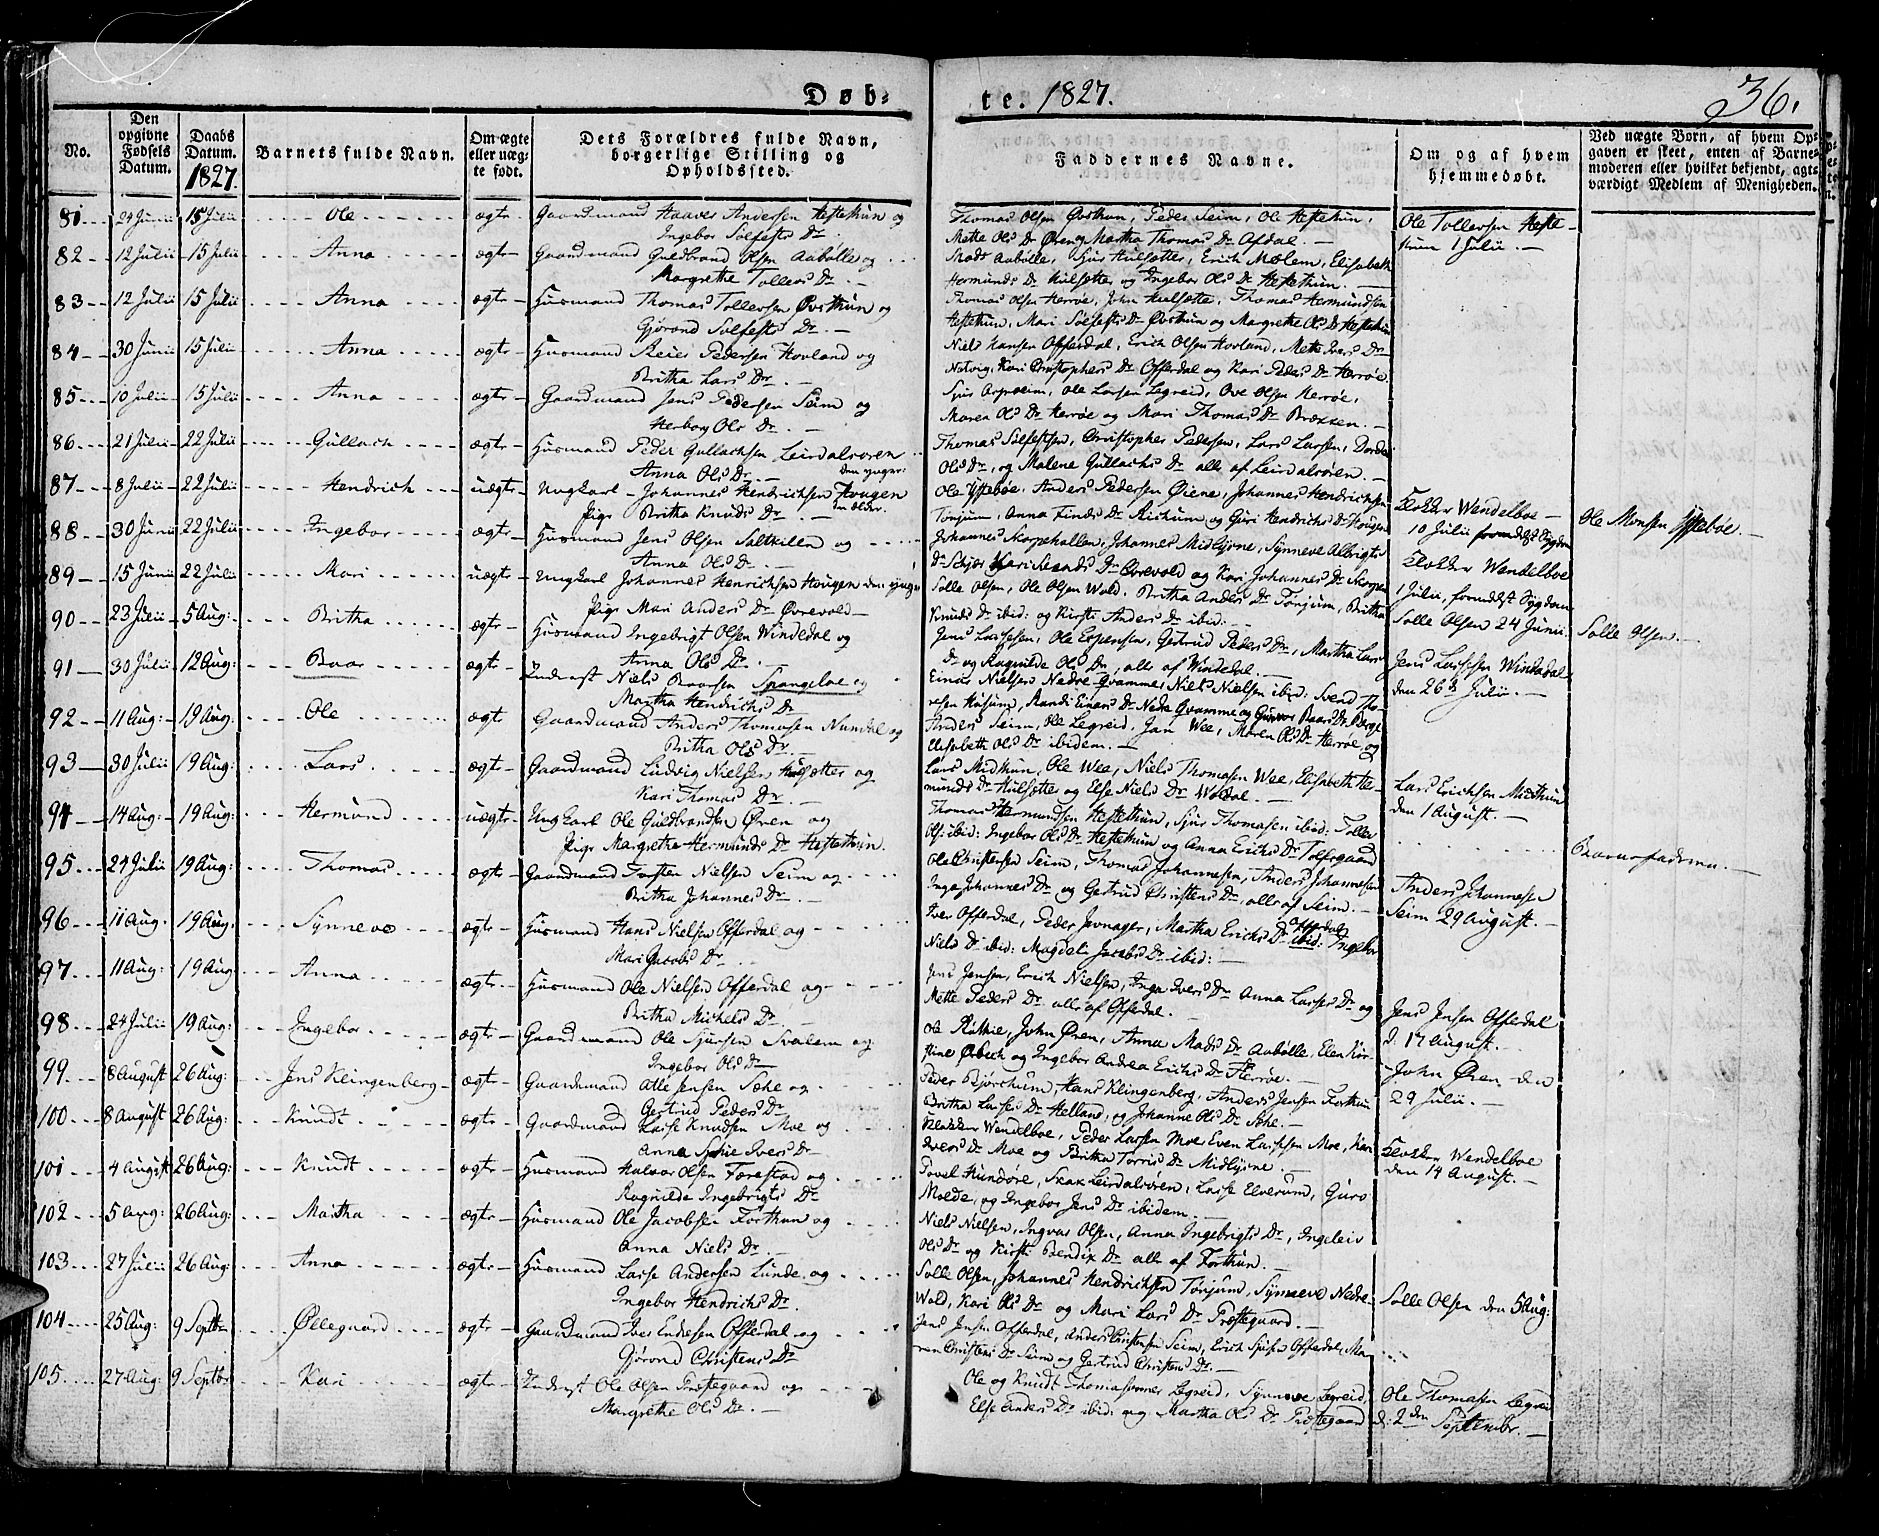 Døb-
te. 1827.
36.
No.
Den opgivne Fødsels Datum.
Daabs Datum. 1827.
Barnets fulde Navn.
Om ægte eller uæg-te født.
Dets Forældres fulde Navn, borgerlige Stilling og Opholdssted.
Faddernes Navne.
Om og af hvem hjemmedøbt.
Ved uægte Børn, af hvem Op-gaven er skeet, enten af Barne-moderen eller hvilket bekjendt, agt-værdigt Medlem af Menigheden.
81 24 Junii 15 Julii Ole ægte Gaardmand Haaver Andersen Hestethun og
Ingebor Sølfests Dr.
Thomas Olsen Øvsthun, Peder Seim, Ole Hestethun,
Mette Ols Dr Øren og Martha Thomas Dr Afdal.
Ole Tollevsen Heste-
thun 1 Julii.
82 12 Julii 15 Julii Anna ægte Gaardmand Guldbrand Olsen Aabølle og
Margrethe Tollevs Dr.
Mads Aabølle, Sjur Hulsætter, Erich Mælem, Elisabeth
Hermunds Dr Hulsætter og Ingebor Ols Dr Hestethun.
83 12 Julii 15 Julii Anna ægte Husmand Thomas Tollevsen Øvsthun og
Gjørond Sølfests Dr.
Thomas Olsen Herrøe, John Hulsætte, Thomas Hermundsen
Hestethun, Mari Sølfests Dr Øvsthun og Margrethe Ols Dr Hestethun
84 30 Junii 15 Julii Anna ægte Husmand Reier Pedersen Hovland og
Britha Lars Dr.
Niels Hansen Offerdal, Erich Olsen Hovland, Mette Ivers Dr
Natvig, Kari Christophers Dr Offerdal og Kari Peders Dr Herrøe.
85 10 Julii 15 Julii Anna ægte Gaardmand Jens Pedersen Seim og
Herborg Ols Dr.
Sjur Asperheim, Ole Larsen Legreid, Ove Olsen Herrøe,
Maren Ols Dr Herrøe og Mari Thomas Dr
86 21 Julii 22 Julii Gullach ægte Husmand Peder Gullachsen Leirdalsøren
Anna Ols Dr.
Thomas Sølfestsen, Christopher Pedersen, Lars Larsen, Dordei
Ols Dr, og Malene Gullachs Dr alle af Leirdalsøren.
87 8 Julii 22 Julii Hendrich uægte Ungkarl Johannes Hendrichsen Hougen den yngre:
Pige Britha Knuds Dr. den ældre.
Ole Yttebøe, Anders Pedersen Øiene, Johannes Hendrichsen
Tønjum, Anna Finds Dr og Guri Hendrichs Dr Hougen
Klokker Wendelboe
10 Julii formedelst Sygdom
Ole Monsen Yttebøe.
88 30 Junii 22 Julii Ingebor ægte Husmand Jens Olsen Saltkillen og
Anna Ols Dr.
Johannes Skarpehallen, Johannes Midlyrne, Synneve Albrigts
Dr
Klokker Wendelboe
1 Julii, formedelst Sygdom
89 15 Junii 22 Julii Mari uægte Ungkarl Johannes Henrichsen Hougen den yngre
Pige Mari Anders Dr Øvrevold
Solle Olsen, Ole Olsen Wold, Britha Anders Dr Tønjum, Britha
Knuds Dr ibid: og Kirsti Anders Dr ibid:
Solle Olsen 24 Junii.
Solle Olsen.
90 23 Julii 5 Aug: Britha ægte Husmand Ingebrigt Olsen Windedal og
Anna Ols Dr.
Jens Larsen, Ole Espensen, Gertrud Peders Dr, Martha Lars
Dr og Ragnilde Ols Dr, alle af Windedal.
Jens Larsen Windedal
den 26de Julii.
91 30 Julii 12 Aug: Baar ægte Inderst Niels Baarsen Spangeloe og
Martha Hendrichs Dr
Einar Nielsen Nedre Qvamme, Niels Nielsen ibid: Svend Tho-
resen Husum, Randi Einars Dr Nedre Qvamme og Guroe Baars Dr Berge
92 11 Aug: 19 Aug: Ole ægte Gaardmand Anders Thomasen Nundal og
Britha Ols Dr.
Anders Seim, Ole Legreid, Jan Wee, Maren Ols Dr Herrøe, og
Elisabeth Ols Dr ibidem.
93 30 Julii 19 Aug: Lars ægte Gaardmand Ludvig Nielsen Hulsætter og
Kari Thomas Dr.
Lars Midthun, Ole Wee, Niels Thomasen Wee, Elisabeth Her-
munds Dr Hulsætte og Else Niels Dr Woldal.
Lars Erichsen Midthun
den 1 August.
94 14 Aug: 19 Aug: Hermund uægte Ungkarl Ole Guldbrandsen Øren og
Pige Margrethe Hermunds Dr Hestethun.
Thomas Hermundsen Hestethun, Sjur Thomasen ibid: Tollev
Ols: ibid: Ingebor Ols Dr Hestethun og Anna Erichs Dr
Barnefaderen.
95 24 Julii 19 Aug: Thomas ægte Gaardmand Torsten Nielsen Seim og
Britha Johannes Dr.
Ole Christensen Seim, Thomas Johannesen, Anders Johannesen
Inga Johannes Dr og Gertrud Christens Dr, alle af Seim.
Anders Johannesen
Seim 29 August.
96 11 Aug: 19 Aug: Synneve ægte Husmand Hans Nielsen Offerdal og
Mari Jacobs Dr
Iver Offerdal, Peder Jevnager, Martha Erichs Dr Offerdal ibid: Ingebor
Niels Dr ibid: Magdeli Jacobs Dr ibid:
97 11 Aug: 19 Aug Anna ægte Husmand Ole Nielsen Offerdal og
Britha Michels Dr.
Jens Jensen, Erich Nielsen, Inga Ivers Dr Anna Larses Dr og
Mette Peders Dr alle af Offerdal.
Jens Jensen Offerdal
d. 17 August.
98 24 Julii 19 Aug: Ingebor ægte Gaardmand Ole Sjursen Svalem og
Ingebor Ols Dr
Ole Røthie, John Øren, Anna Mads Dr Aabølle, Elen Kir-
stine Ørbech og Ingebor Andrea Erichs Dr Herrøe.
John Øren den
29 Julii.
99 8 August 26 Aug: Jens Klingenberg ægte Gaardmand Atle Jensen Hohe og
Gertrud Peders Dr
Peder Bjørchum, Hans Klingenberg, Anders Jensen Forthun
Britha Larses Dr Helland, og Johanne Ols Dr
100 8 August 26 Aug: Knudt ægte Gaardmand Larse Knudsen Moe og
Anna Sophie Ivers Dr
Klokker Wendelboe, Peder Larsen Moe, Even Larsen Moe, Kari
Ivers Dr Moe og Britha Torris Dr Midlyrne.
Klokker Wendelboe
den 14 August.
101 4 August 26 Aug: Knudt ægte Husmand Halvor Olsen Farestad og
Ragnilde Ingebrigts Dr
Povel Hundøre, Isak Leirdalsøren, Larse Elverum, Guro
Molde, og Ingebor Jens Dr ibidem.
102 5 Aug: 26 Aug: Martha ægte Husmand Ole Jacobsen Forthun og
Anna Niels Dr.
Niels Nielsen, Ingvar Olsen, Anna Ingebrigts Dr, Ingeleiv
Ols Dr og Kirsti Bendix Dr alle af Forthun.
103 27 Julii 26 Aug: Anna ægte Husmand Larse Andersen Lunde og
Ingebor Hendrichs Dr.
Solle Olsen, Johannes Hendrichsen Tønjum, Synneve Nedre-
Wold, Kari Ols Dr og Mari Lars Dr Præstegaard.
Solle Olsen den 5 Aug:
104 25 Aug: 9 Septbr Øllegaard ægte Gaardmand Iver Endresen Offerdal og
Gjørond Christens Dr
Jens Jensen Offerdal, Anders Christensen Seim, Erich Sjursen Offerdal, Ma-
ren Christens Dr Seim og Gertrud Christens Dr.
105 27 Aug: 9 Septbr Kari ægte Inderst Ole Olsen Præstegaard og
Margrethe Ols Dr.
Ole og Knudt Thomasønner Legreid, Synneve Legreid
Else Anders Dr ibid: og Martha Ols Dr Præstegaard
Ole Thomasen Legreid
d: 2den September.